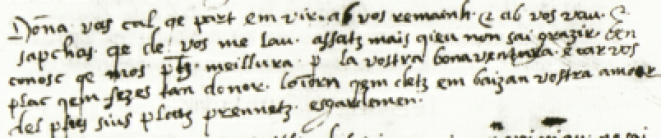 Dona vos cal qe part em vir. ab vos remainh. & ab vos vau. &
sapchas qe de vos me lau. assatz mais qieu non sai grazir. ben
conosc qe mos pretz meillura. p la vostra bonaventura. e car vos
plac qem fezes tan donor. lo iorn qem detz em baizan vostra amor
del plus sius platz prennetz. esgardamen.